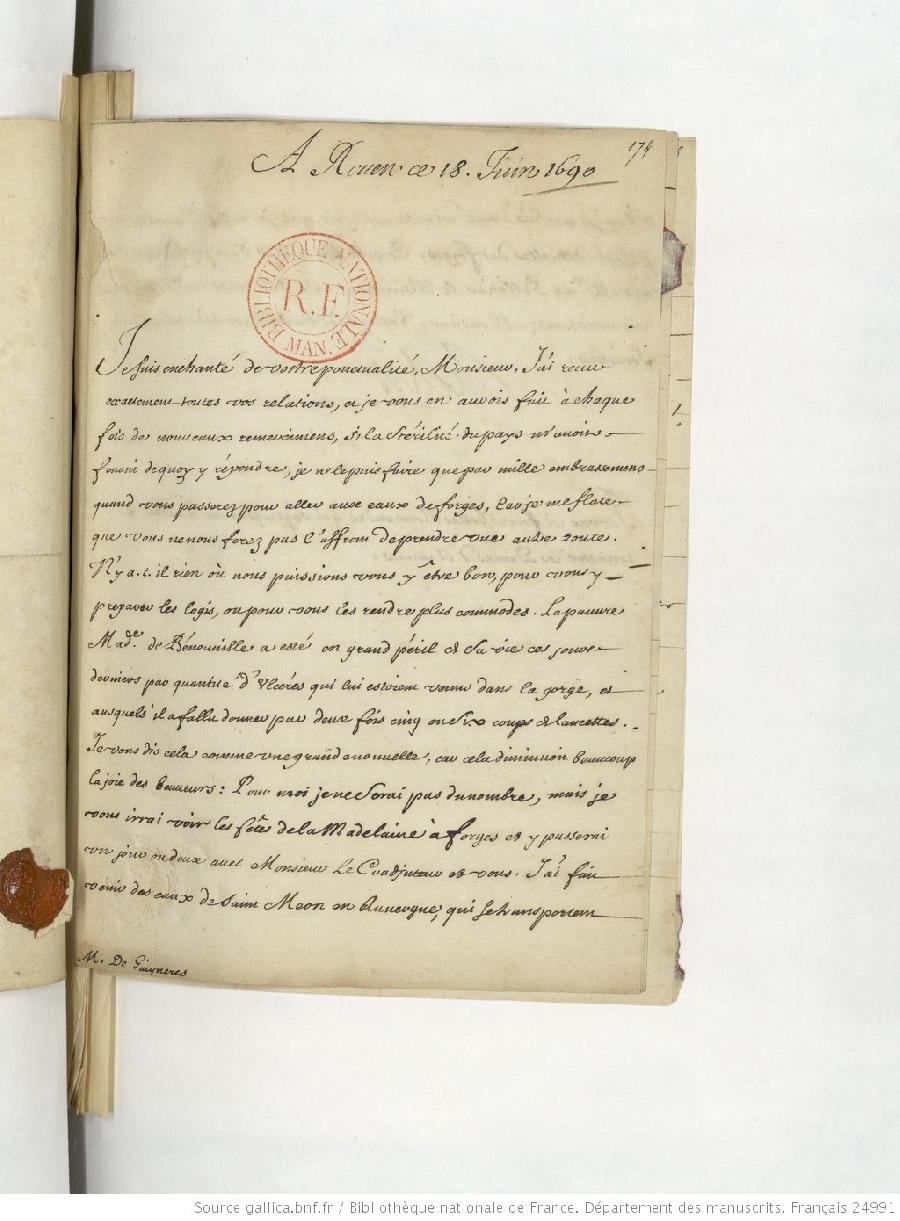 174
A Rouen ce 18. Juin 1690
BIBLIOTHEQUE NATIONALE MAN.
R.F.
Je suis enchanté de vostre ponctualité, Monsieur, J'ai receu
exactement toutes vos relations, et je vous en aurois fait à chaque
fois de nouveaux remerciemens, si la stérilité du pays m'avoit
fourni de quoy y répondre, je ne le puis faire que par mille embrassemens
quand vous passerez pour aller aux eaux de forges, Car je me flate
que vous ne nous ferez pas l'affront de prendre une autre route.
N'y a-t-il rien où nous puissions vous y être bon, pour vous y
préparer les logis, ou pour vous les rendre plus commodes. La pauvre
Made. de Bénouville a esté en grand péril de sa vie ces jours
derniers par quantité d'Ulcéres qui lui estoient venus dans la gorge, et
ausquels il a fallu donner par deux fois cinq ou six coups de lancettes.
Je vous dis cela comme une grande nouvelle, car cela diminuë beaucoup
la joie des beuveurs: Pour moi je ne serai pas du nombre, mais je
vous irrai voir les fêtes de la Madelaine à forges et y passerai
un jour ou deux avec Monsieur Le Coadjuteur et vous. J'ai fait
venir des eaux de Saint Meon en Auvergne, qui se transportent
M. De Gaignieres
Source gallica.bnf.fr / Bibliothèque nationale de France. Département des manuscrits. Français 24991